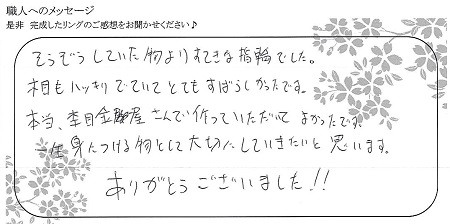 職人へのメッセージ
是非 完成したリングのご感想をお聞かせください♪
そうぞうしていた物よりすてきな指輪でした。
木目もハッキリでていてとてもすばらしかったです。
本当、杢目金屋さんで作っていただいてよかったです。
一生身につける物として大切にしていきたいと思います。
ありがとうございました!!